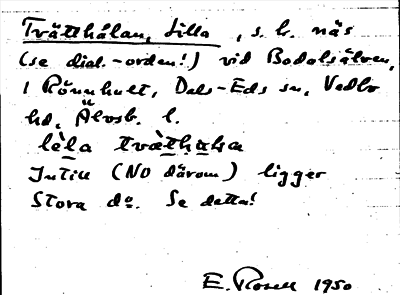 Tvätthålan, Lilla, s. k. näs
(se dial.-orden!) vid Bodalsälven,
i Rönnhult, Dals-Eds sn, Vedbo
hd, Älvsb. l.
lèla tvæthəla
Intill (NO därom) ligger
Stora do. Se detta!
E. Rosell 1950